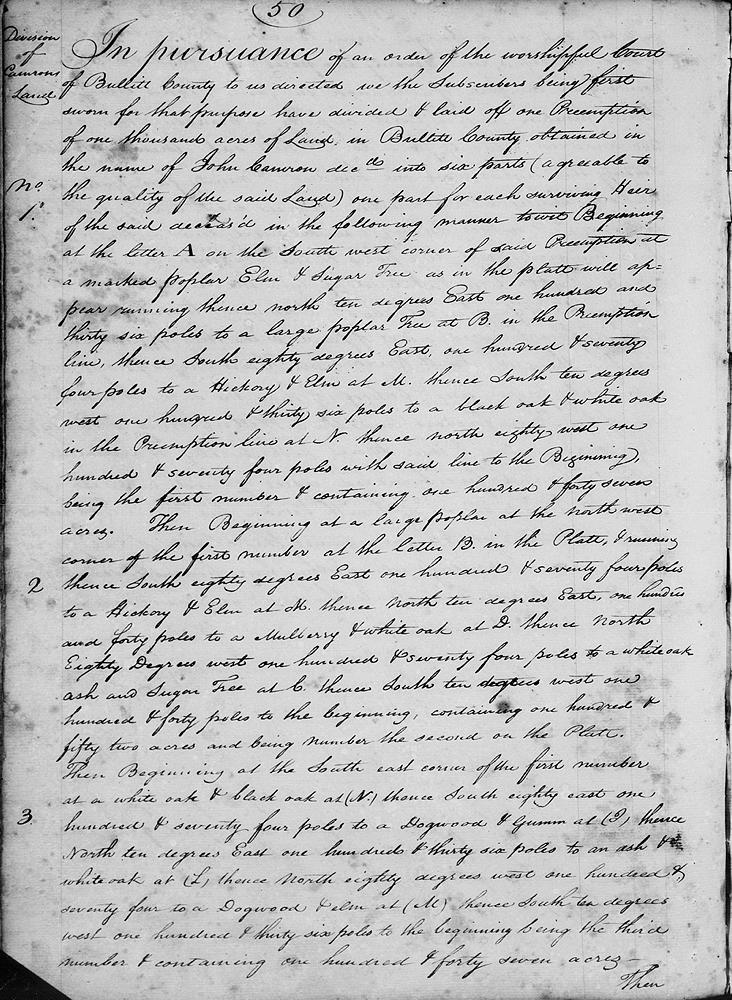 50
Division
of
Camrons
Land
In pursuance of an order of the worshipful Court
of Bullitt County to us directed we the Subscribers being first
sworn for that purpose have divided & laid off one Preemption
of one thousand acres of Land, in Bullitt County obtained in
the name of John Camron decd. into six parts (agreeable to
No.
1.
the quality of the said Land) one part for each surviving Heir
of the said deceas'd in the following manner towit Beginning
at the letter A on the South west corner of said Preemption at
a marked poplar Elm & Sugar Tree as in the platt will ap=
pear running thence north ten degrees East one hundred and
thirty six poles to a large poplar Tree at B. in the Preemption
line, thence South eighty degrees East, one hundred & seventy
four poles to a Hickory & Elm at M. thence South ten degrees
west one hundred & thirty six poles to a black oak & white oak
in the Preemption line at N thence north eighty west one
hundred & seventy four poles with said line to the Beginning,
being the first number & containing one hundred & forty seven
acres. Then Beginning at a large poplar at the north west
corner of the first number at the letter B. in the Platt, & running
2
thence South eighty degrees East one hundred & seventy four poles
to a Hickory & Elm at M. thence North ten degrees East, one hundred
and forty poles to a Mulberry & white oak at D thence North
Eighty Degrees west one hundred & seventy four poles to a white oak
ash and Sugar Tree at C. thence South ten degrees west one
hundred & forty poles to the beginning, containing one hundred &
fifty two acres and being number the second on the Platt.
Then Beginning at the South east corner of the first number
at a white oak & black oak at (N.) thence South eighty east one
3
hundred & seventy four poles to a Dogwood & Gumm at (I) thence
North ten degrees East one hundred & thirty six poles to an ash &
white oak at (L) thence North eighty degrees west one hundred &
seventy four to a Dogwood & elm at (M) thence South ten degrees
west one hundred & thirty six poles to the beginning being the third
number & containing one hundred & forty seven acres
Then